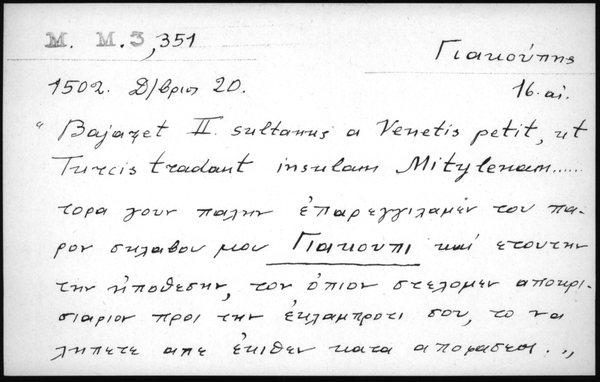 M. M. 3, 351
Γιακούπης
1502. Δ/βριος 20.
16. αἰ.
"Bajazet II. sultanus a Venetis petit, ut
Turcis tradant insulam Mitylenam......
τορα γουν παλην ἐπαρεγγιλαμὲν του πα-
ρον σκλαβου μου Γιακουπι καί ετουτην
την ἠποθεσην, τον ὁπιον στελομεν αποκρι-
σιαριον προς την ἐκλαμπροτι σου, το να
ληπετε απε ἐκιθεν κατα αποφασεσι..,,